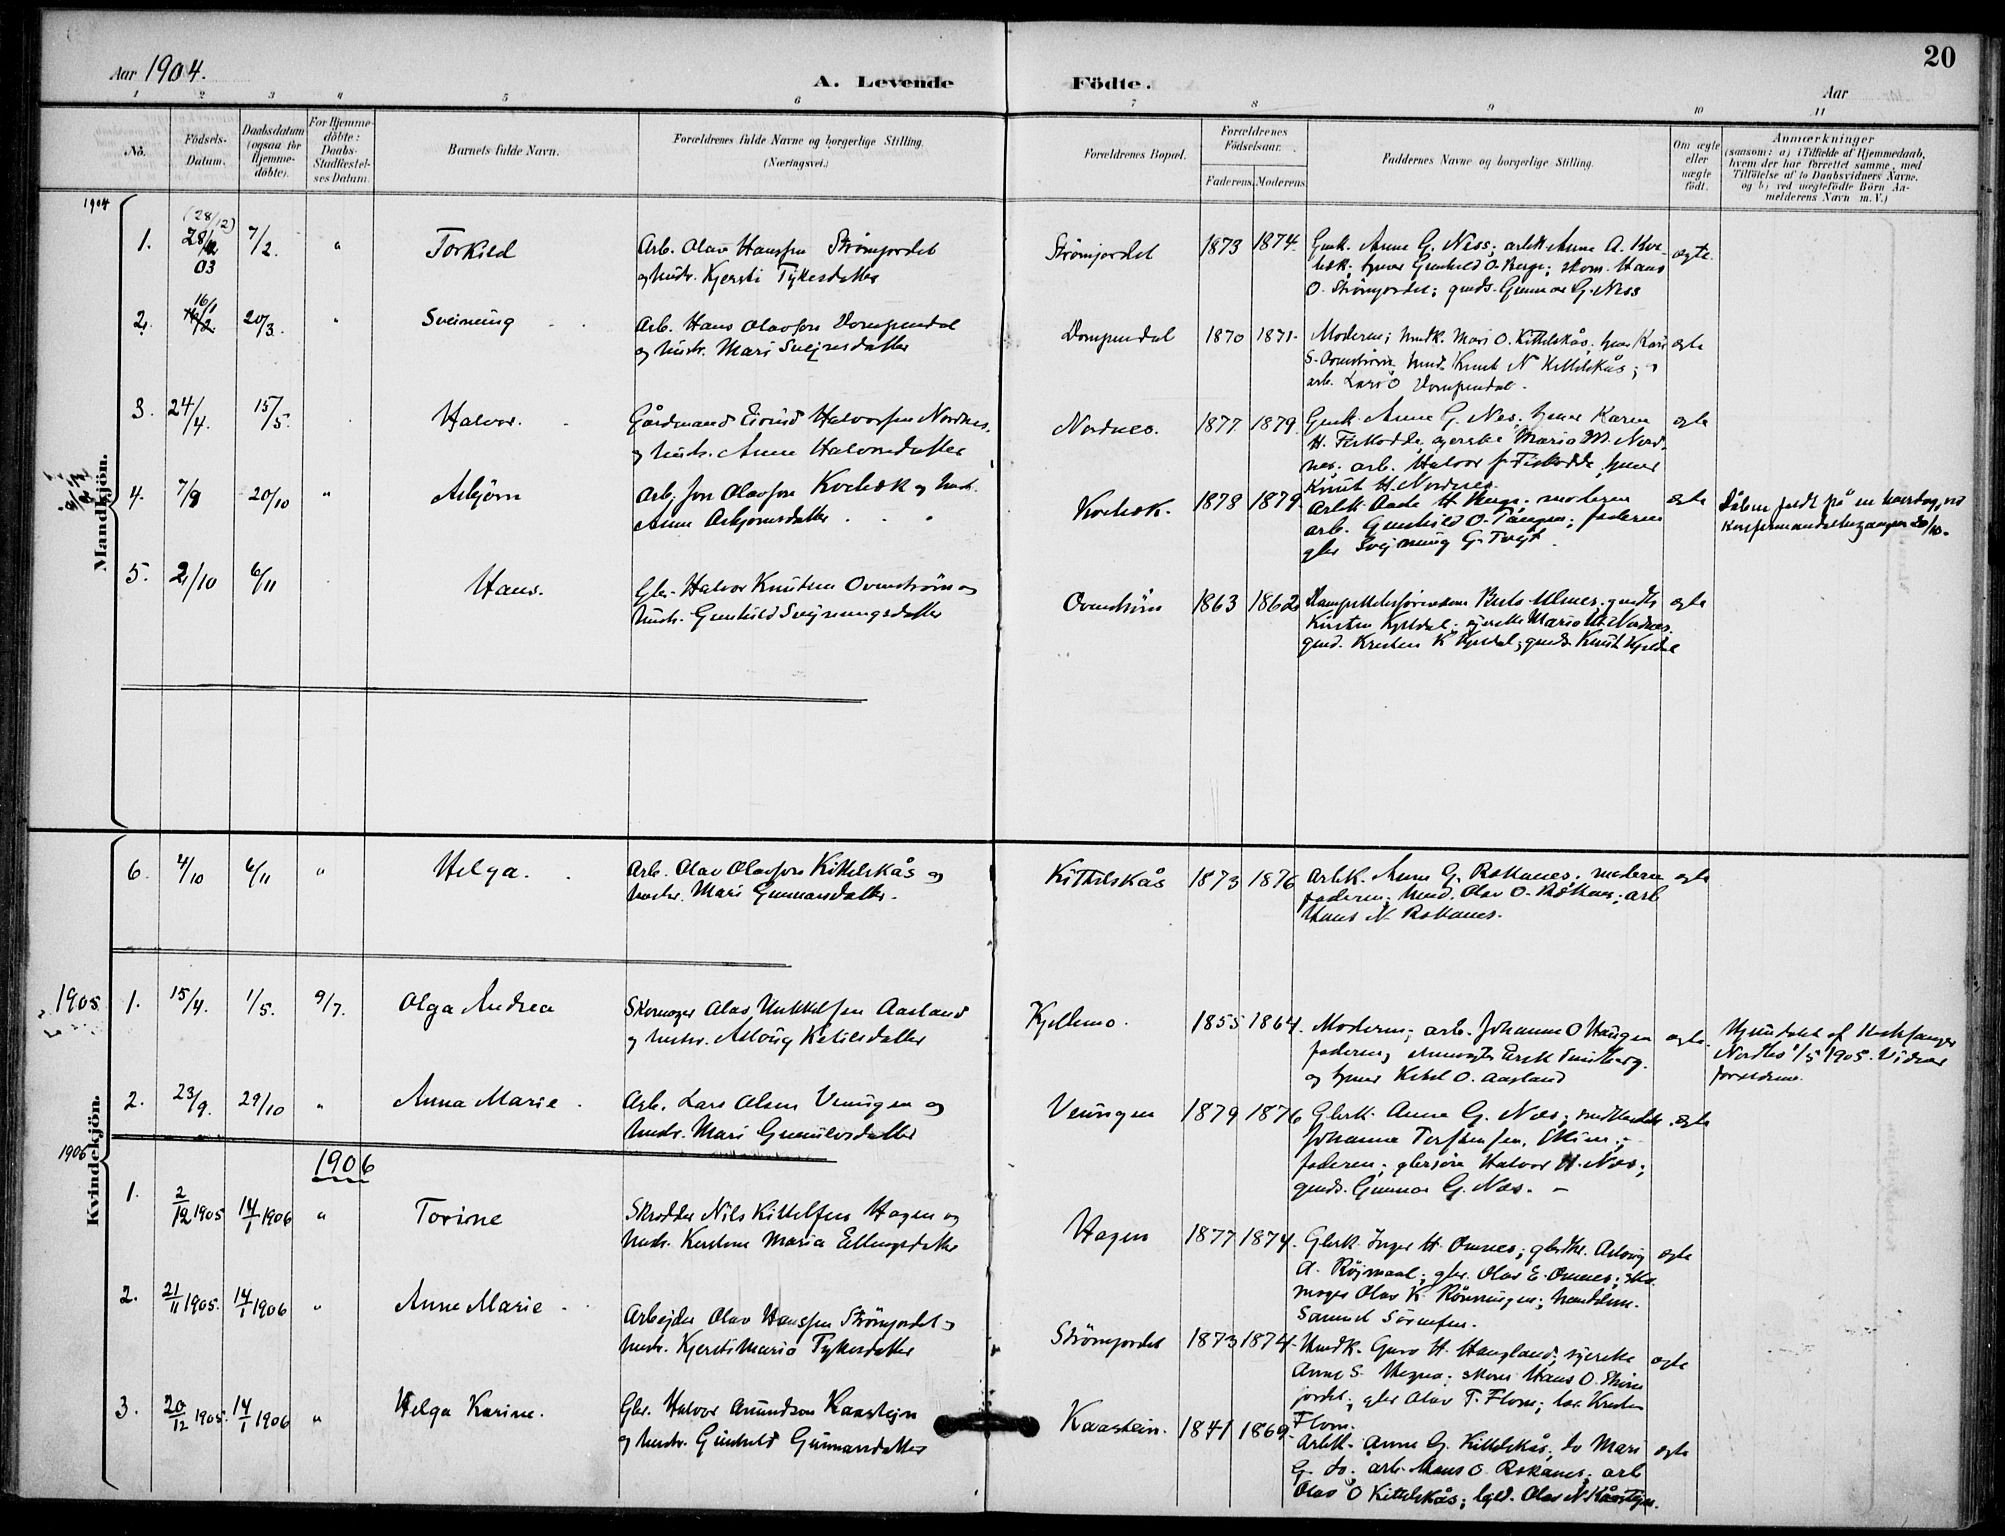 20
Aar 1904.
A. Levende Födte.
Aar
1 2 3 4 5 6 7 8 9 10 11
No.
Födsels-Datum.
Daabsdatum (ogsaa for Hjemme-döbte).
For Hjemme-döbte: Daabs-Stadfæstel-ses Datum.
Barnets fulde Navn.
Forældrenes fulde Navne og borgerlige Stilling. (Næringsvei.)
Forældrenes Bopæl.
Forældrenes Födselsaar.
Faderens. Moderens.
Faddernes Navne og borgerlige Stilling.
Om ægte eller uægte födt.
Anmærkninger
(saasom: a) i Tilfælde af Hjemmedaab, hvem der har forrettet samme, med Tilföielse af to Daabsvidners Navne, og b) ved uægtefödte Börn An-melderens Navn m. V.)
1904
Mandkjön.
1. (28/12) 28/12 03 7/2. " Torkild
Arb. Olav Hanssen Strömjordet
og hustr. Kjersti Tykesdatter
Strömjordet 1873 1874.
Gmk. Anne G. Ness; arbk. Anne A.
Gunhild O. Berge; skom. Hans
O. Strömjordet; gmds. Gunnar G. Ness
ægte.
2. 16/1 20/3. " Sveinung
Arb. Hans Olavsen Dompendal
og hustr. Mari Svejnsdatter
Dompendal 1870 1871.
Moderen; husmk. Mari O. Kittelskås; Kari
S. Ovnström Knut N Kittelskås;
arb. Lars O Dompendal.
ægte
3. 24/4. 15/5. Halvor.
Gårdmand Eivind Halvorsen Nordnes.
og hustr. Anne Halvorsdatter
Nordnes. 1877 1879.
Gmk. Anne G. Nes; Karen
H. Fiskodde, Maria M. Nord-
nes; arb. Halvor J. Fiskodde,
Knut H. Nordnes.
ægte
4. 7/9 20/10 " Asbjörn
Arb. Jon Olavsen Kvehsk og hust.
Anne Asbjornsdatter
Kvehsk. 1878 1879.
Arbk. Aade H Berge. moderen
arb. Gunhild O. Tangen; faderen
gbr Svejnung G. Tveit.
ægte
Dåben faldt på en hverdag, ved
konfirmandaltergangen 20/10.
5. 2/10 6/11 Hans.
Gbr. Halvor Knutsen Ovnström og
hustr. Gunhild Svejnungsdatter
Ovnström 1863 1862
Ulsnes, gmdtr
Kirsten Kjeldal; Maria M. Nordnes.
gmd. Kristen K Kjeldal; gmds Knut Kjeldal
ægte
Kvindekjön.
6. 4/10 6/11 " Helga.
Arb. Olav Olavsen Kittelskås og
hustr. Mari Gunnarsdatter.
Kittelskås 1873 1876
Arbk. Anne G. Rokanes. moderen
faderen; husmd. Olav O. Rokanes; arb
Hans N. Rokanes.
ægte
1905
1. 15/4. 1/5. 9/7. Olga Andrea
Skomager Olav Aasland
og hustr. Aslaug Ketilsdatter
Kjellemo. 1855 1864.
Moderen; arb. Johanne O Haugen
faderen, Erik
og Ketil O. Aasland
ægte.
Hjemdöbt af
1/5 1905. Vidner
forældrene.
2. 23/9. 29/10 " Anna Marie
Arb. Lars Olsen Veningen og
hustr. Mari
Veningen 1879 1876
Gbrk. Anne G. Nes;
Johanne
faderen; gbrsön Halvor H. Nes;
gmds. Gunnar G. Nes. –
ægte
1906
1906
1. 2/12 1905 14/1 1906 " Torine
Skrædder Nils Kittelsen Hagen og
hustr. Maria Ellingsdatter
Hagen 1877 1874.
Gbrk. Inger H. Omnes; gbrdtr. Aslaug
A. Röjmaal; gbr. Olav E. Omnes; sko-
mager Olav K. Rönningen; handelsm.
Samuel Sörensen.
ægte
2. 21/11 1905. 14/1 1906 " Anne Marie
Arbejder Olav Hanssen Strömjordet og
hustr. Kjersti Maria Tykesdatter
Strömjordet 1873 1874.
Husmk. Guro H. Haugland;
Anne S. skom Hans O. Ström
jordet; gbr Olav T. Flom;
Flom.
ægte
3. 20/12 1905. 14/1 1906 " Helga Karine.
Gbr. Halvor Amundson Kaastejn
og hustr. Gunhild Gunnarsdatter
Kaastein. 1841 1869.
Arbk. Anne G. Kittelskås; do Mari
G. do; arb. Hans O. Rokanes; arb
Olav O Kittelskås; Olav N. Kåstejn.
ægte